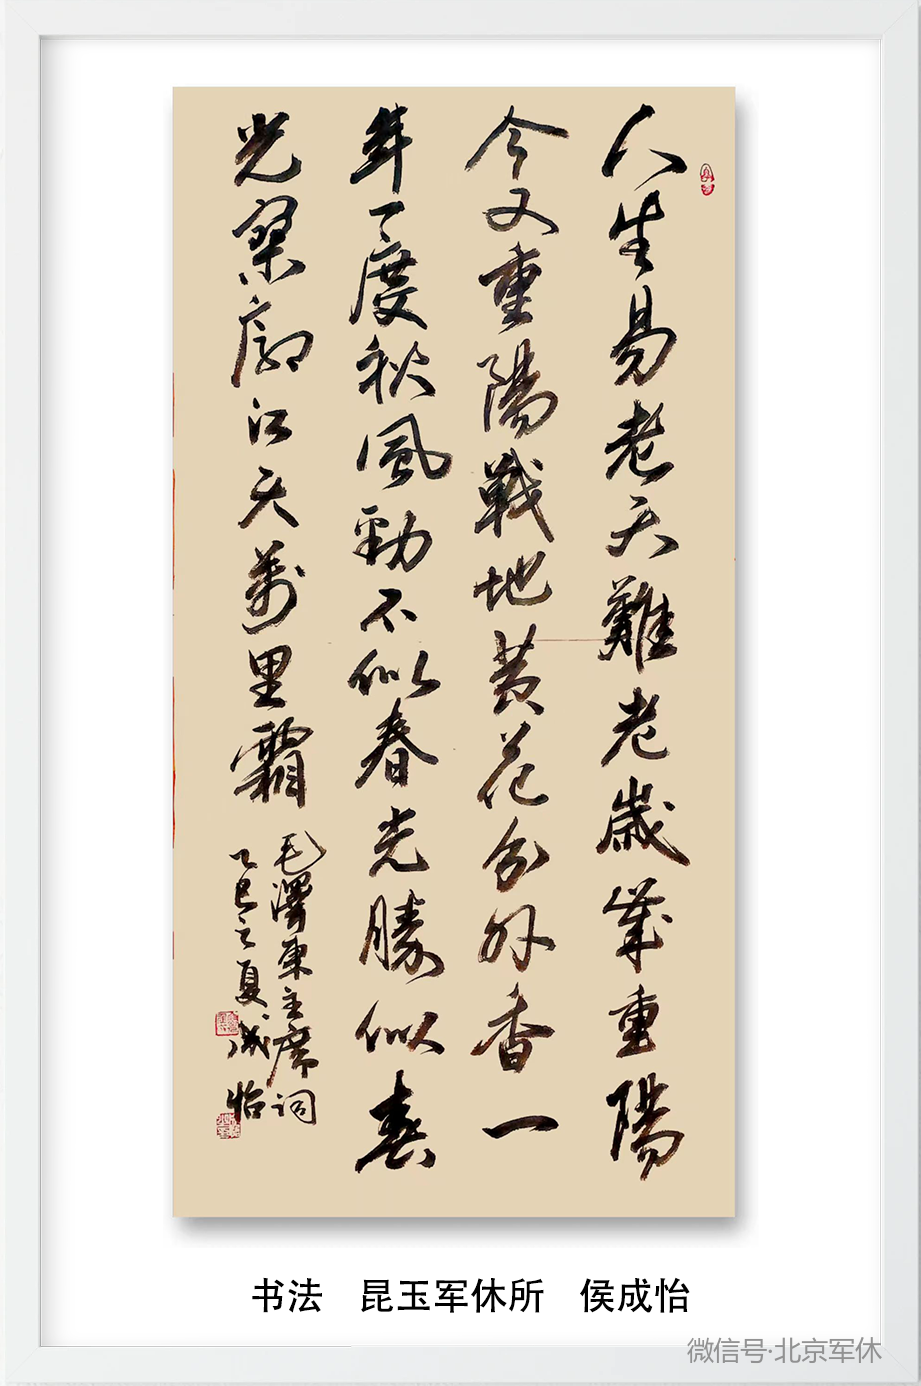 人生易老天難老歲歲重陽
今又重陽戰地黄花分外香一
年一度秋風勁不似春光勝似春
光寥廓江天萬里霜
毛澤東主席词
乙巳之夏成怡
书法 昆玉军休所 侯成怡
微信号·北京军休